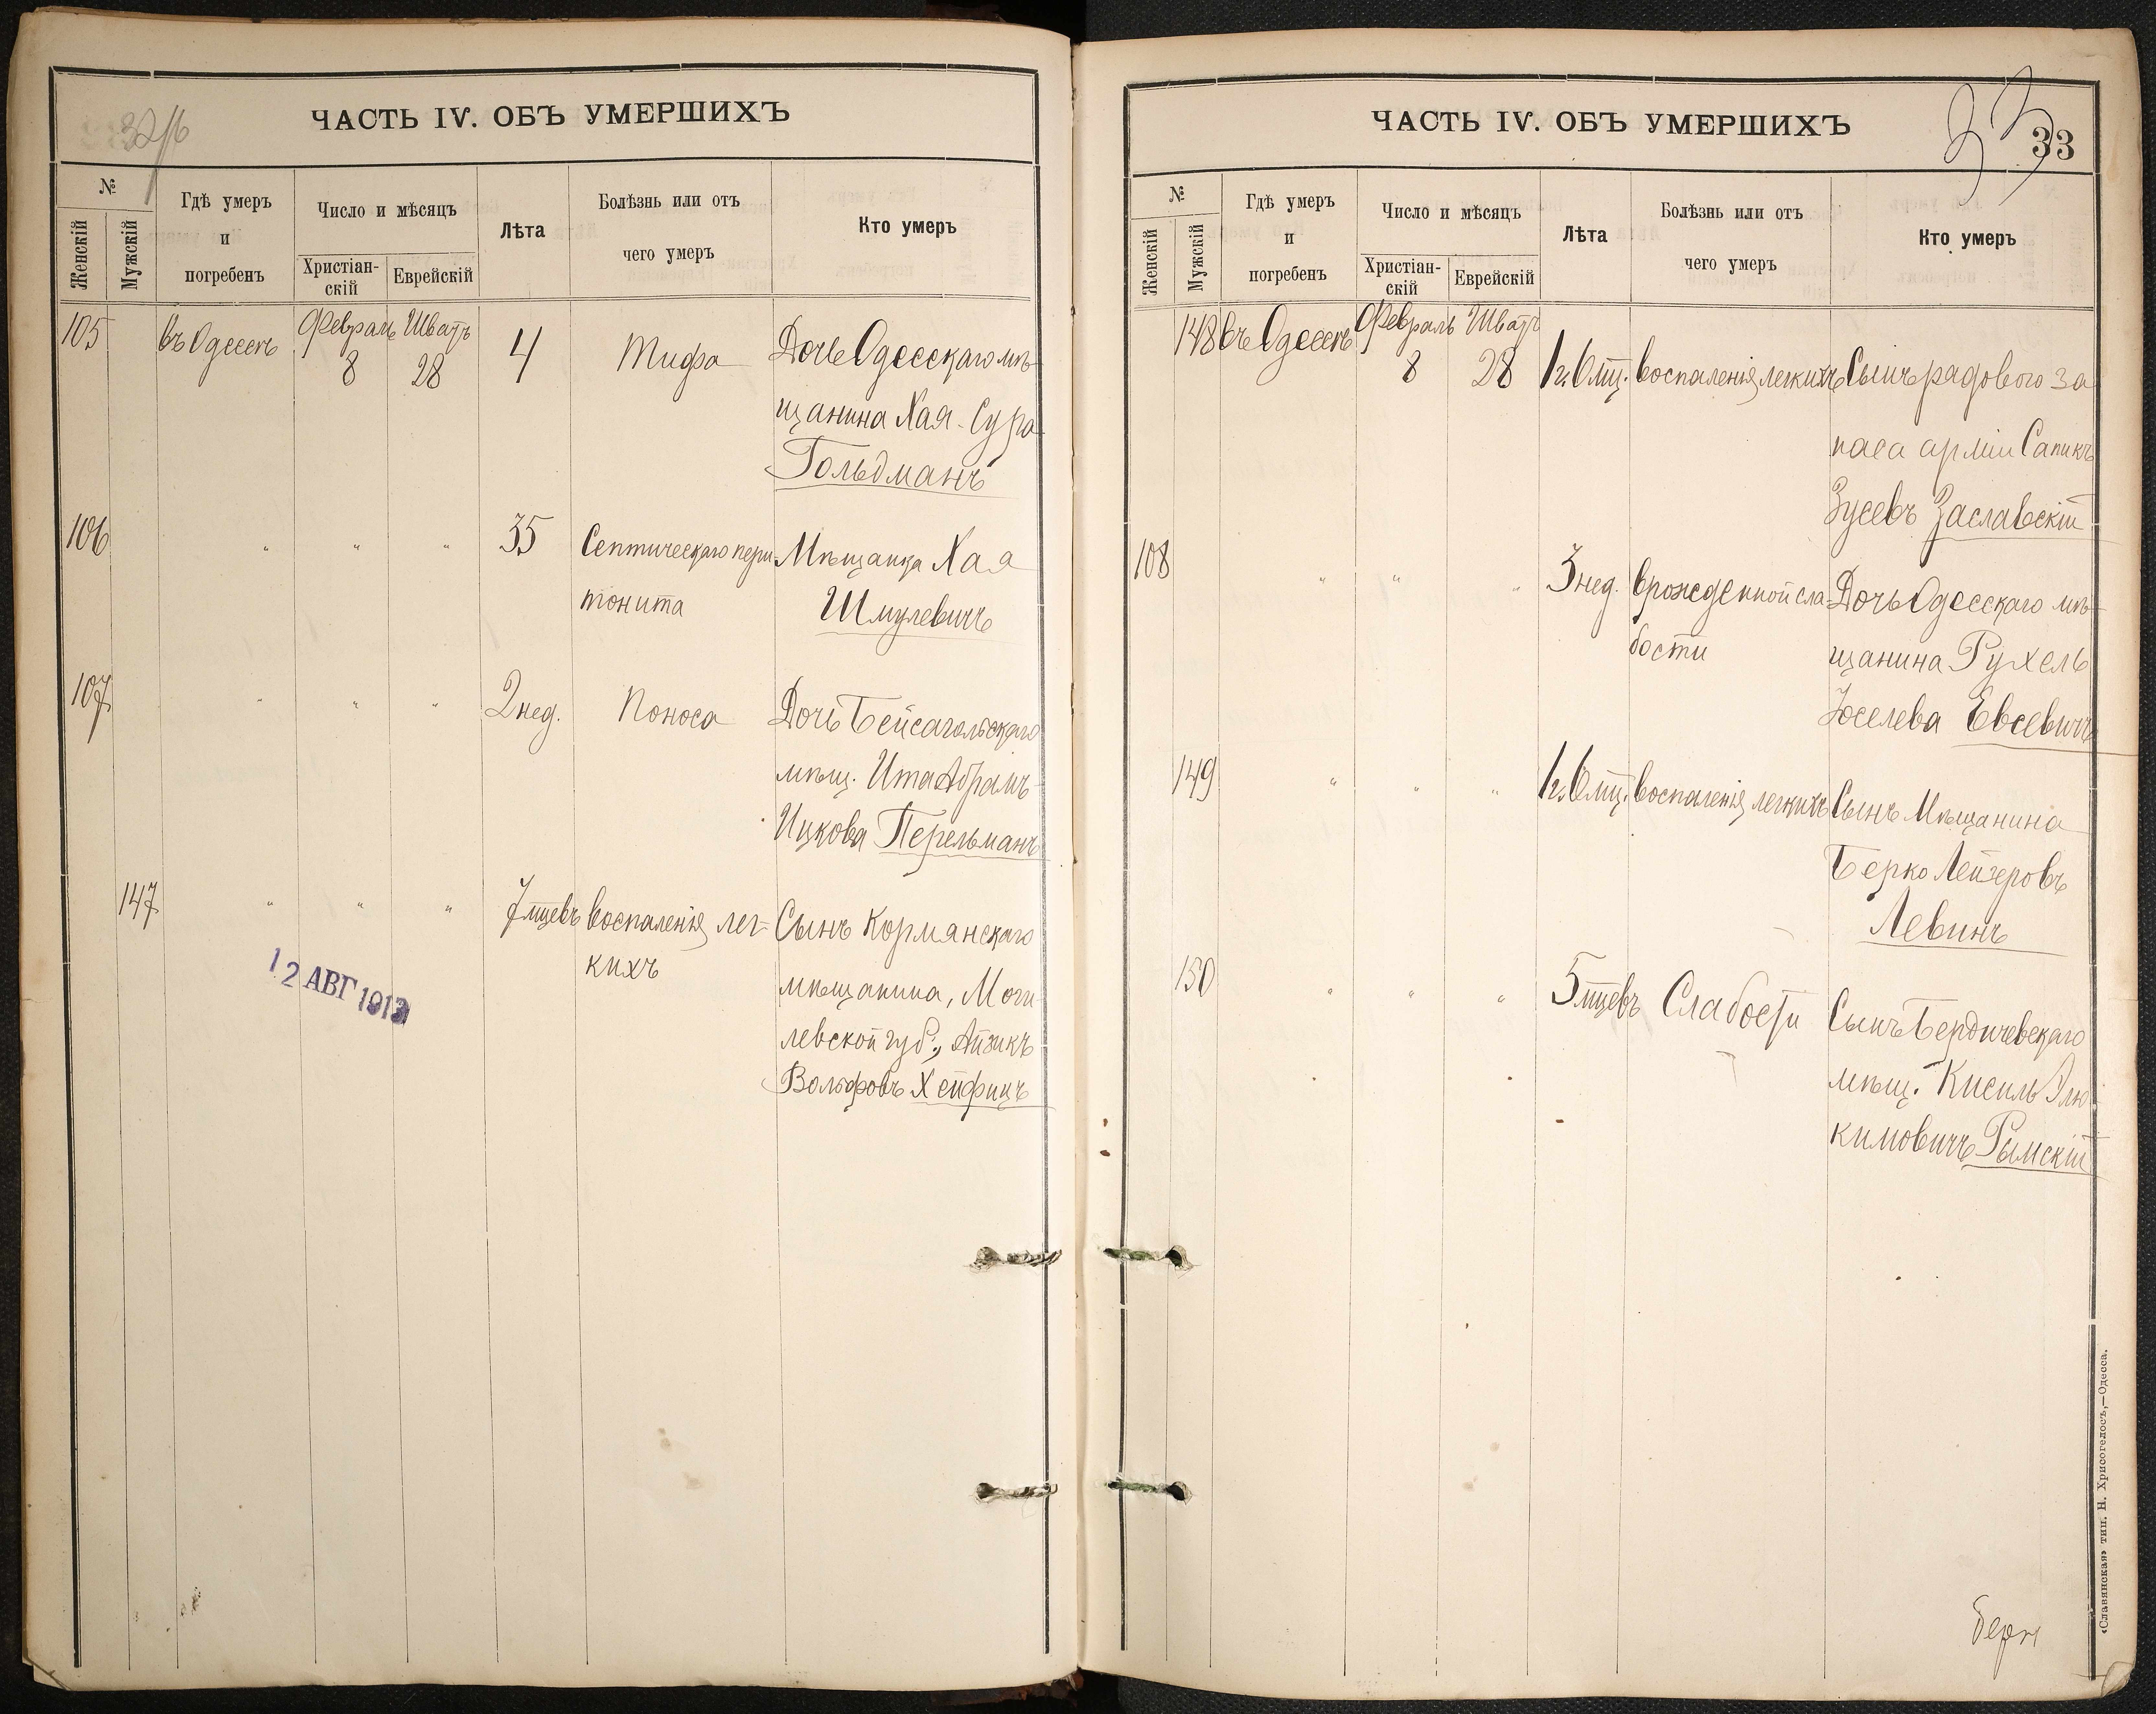 32/16
ЧАСТЬ IV. ОБЪ УМЕРШИХЪ
№
Женскій
Мужскій
Гдѣ умеръ
и
погребенъ
Число и мѣсяцъ
Христіан-
скій
Еврейскій
Лѣта
Болѣзнь или отъ
чего умеръ
Кто умеръ
105 въ Одессѣ Февраль 8 Шватъ 28 4 Тифа Дочь Одесскаго мѣ-
щанина Хая-Сура
Гольдманъ
106 " " " 35 Септическаго пери- Мѣщанка Хая
тонита Шмулевичъ
107 " " " 2 нед. Поноса Дочь Бейсагольскаго
мѣщ. Ита Абрамъ-
Ицкова Перельманъ
147 " " " 7 мцевъ воспаленія лег- Сынъ Кормянскаго
кихъ мѣщанина, Моги-
левской губ., Айзикъ
Вольфовъ Хейфицъ
12 АВГ 1913
ЧАСТЬ IV. ОБЪ УМЕРШИХЪ
33
33
№
Женскій
Мужскій
Гдѣ умеръ
и
погребенъ
Число и мѣсяцъ
Христіан-
скій
Еврейскій
Лѣта
Болѣзнь или отъ
чего умеръ
Кто умеръ
148 въ Одессѣ Февраль 8 Шватъ 28 1 г. 6 мц. воспаленія легкихъ Сынъ рядового за
паса арміи Сапикъ
Зусевъ Заславскій
108 " " " 3 нед. врожденной сла- Дочь Одесскаго мѣ-
бости щанина Рухель
Іоселева Евсевичъ
149 " " " 1 г. 6 мц. воспаленія легкихъ Сынъ Мѣщанина
Берко Лейзеровъ
Левинъ
150 " " " 5 мцевъ Слабости Сынъ Бердичевскаго
мѣщ. Кисиль Элю-
кимовичъ Рымскій
«Славянская» тип. Н. Хрисогелосъ,—Одесса.